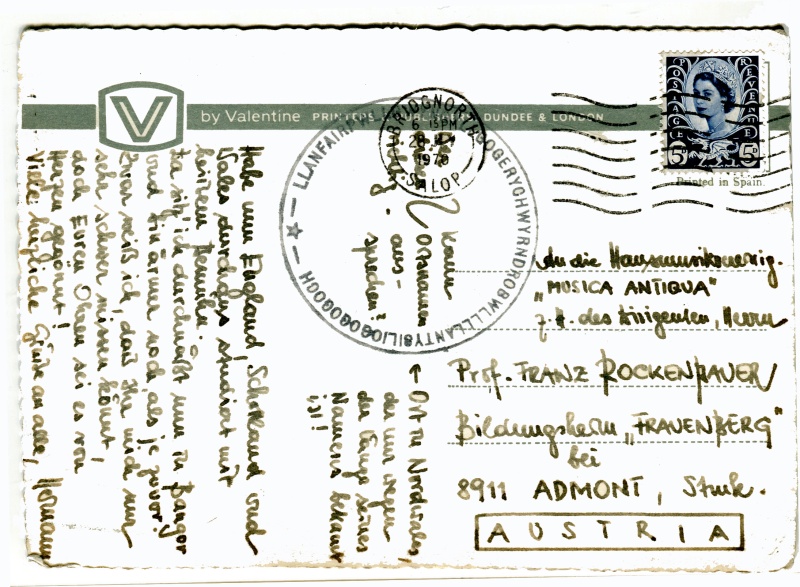 V
by Valentine PRINTERS & PUBLISHERS, DUNDEE & LONDON
BRIDGNORTH
6 - PM
1970
SALOP
POSTAGE REVENUE
5D 5D
Printed in Spain.
LLANFAIRP GOGERYCHWYRNDROBWLLLLANTYSILIOGOGOGOCH
Habe nun England, Schottland und
Wales durchaus studiert mit
heissem Bemühn.
Da sitz' ich durchnäßt nun in Bangor
und bin ärmer noch als je zuvor!
Zwar weiß ich, daß Ihr mich nur
sehr schwer missen könnt,
doch Euren Ohren sei es von
Herzen gegönnt!
Viele herzliche Grüße an alle, Hermann
Kann
Ortsnamen
aus-
sprechen?
↑ Ort in Nordwales,
der nur wegen
der Länge seines
Namens bekannt
ist!
An die Hausmusikvereinig.
„MUSICA ANTIQUA"
z. H. des Dirigenten, Herrn
Prof. FRANZ ROCKENBAUER
Bildungsheim „FRAUENBERG"
bei
8911 ADMONT, Stmk.
AUSTRIA